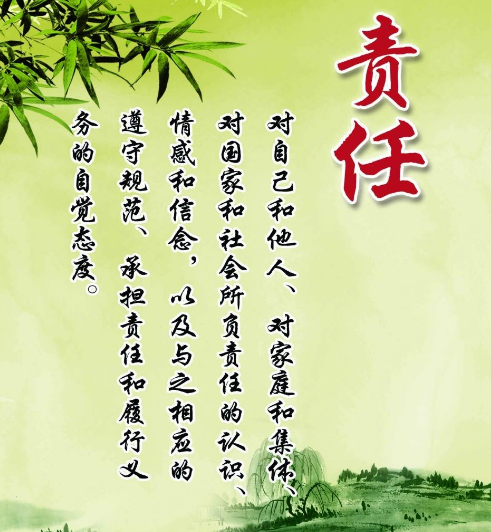 责任
对自己和他人、对家庭和集体、
对国家和社会所负责任的认识、
情感和信念，以及与之相应的
遵守规范、承担责任和履行义
务的自觉态度。